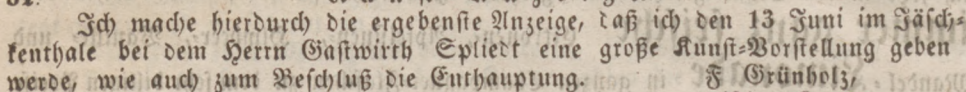 Ich mache hierdurch die ergebenste Anzeige, daß ich den 13 Juni im Jäsch-
kenthale bei dem Herrn Gastwirth Spliedt eine große Kunst-Vorstellung geben
werde, wie auch zum Beschluß die Enthauptung. F Grünholz,